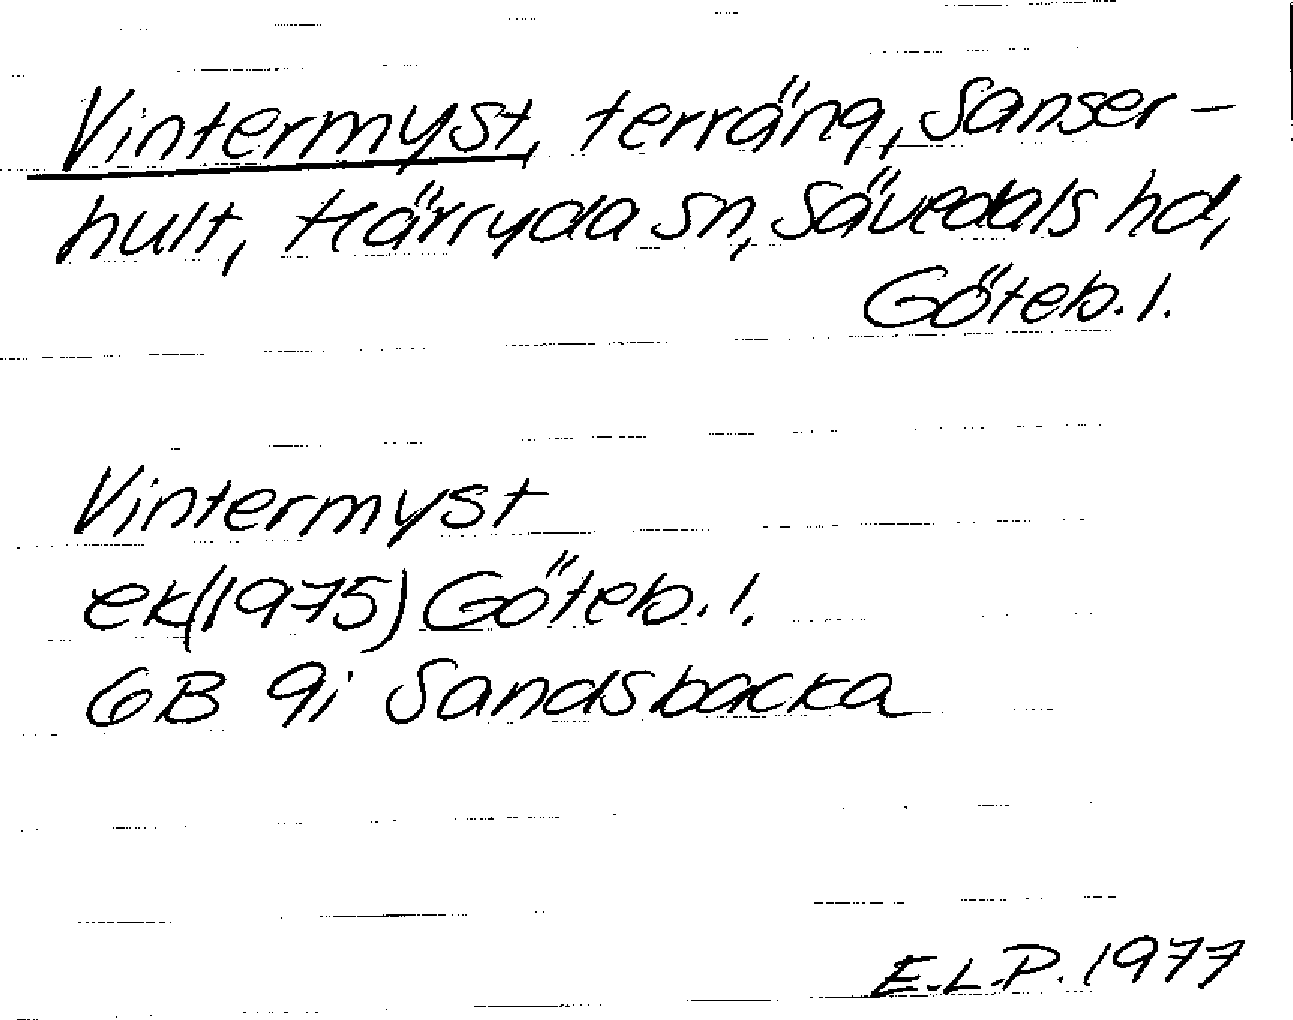 Vintermyst, terräng, Sanser-
hult, Härryda sn, Sävedals hd,
Göteb. l.
Vintermyst
ek(1975) Göteb. l.
6B 9i Sandsbacka
E.L.P. 1977